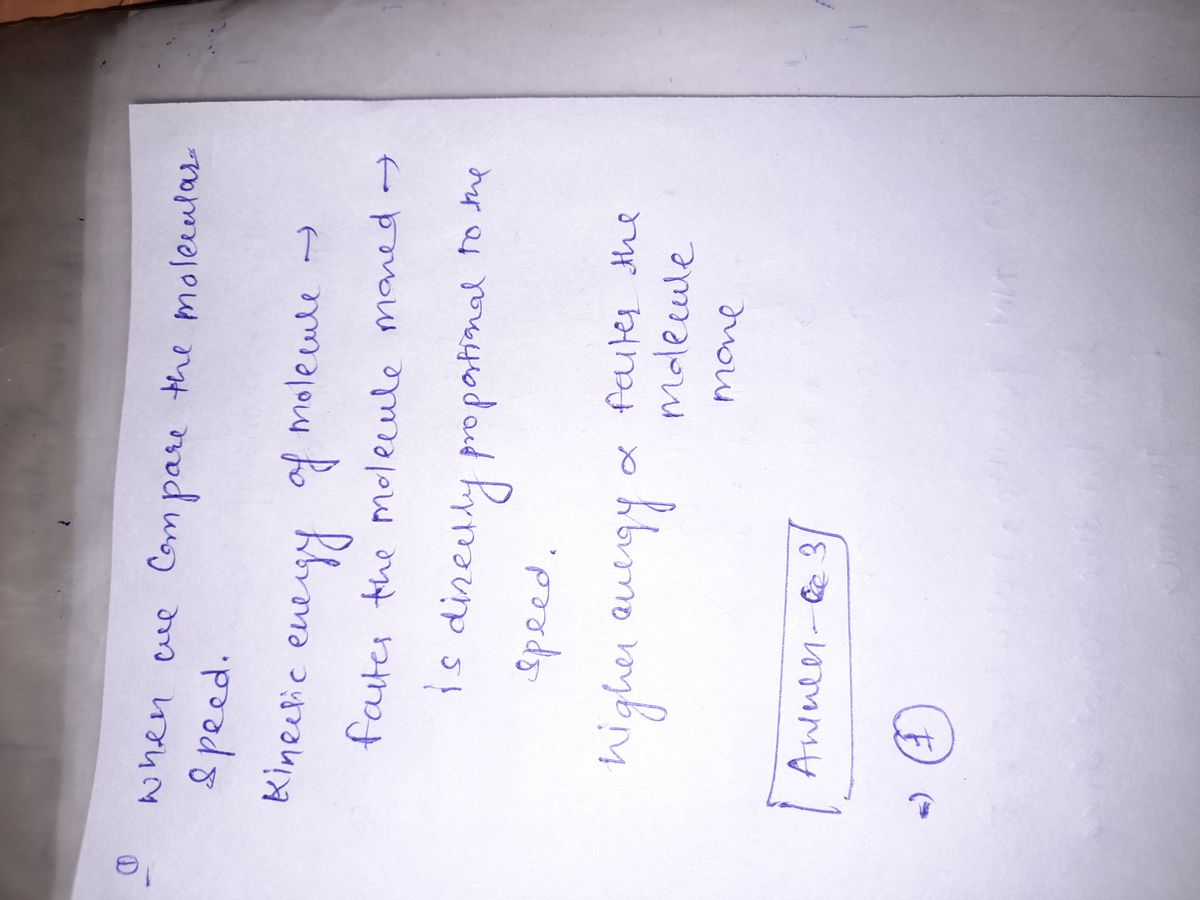 ①
When we compare the molecular
speed.
Kinetic energy of molecule →
faster the molecule moved →
is directly proportional to the
speed.
Higher energy ∝ faster the
molecule
move
Answer - 3
⇒ ①